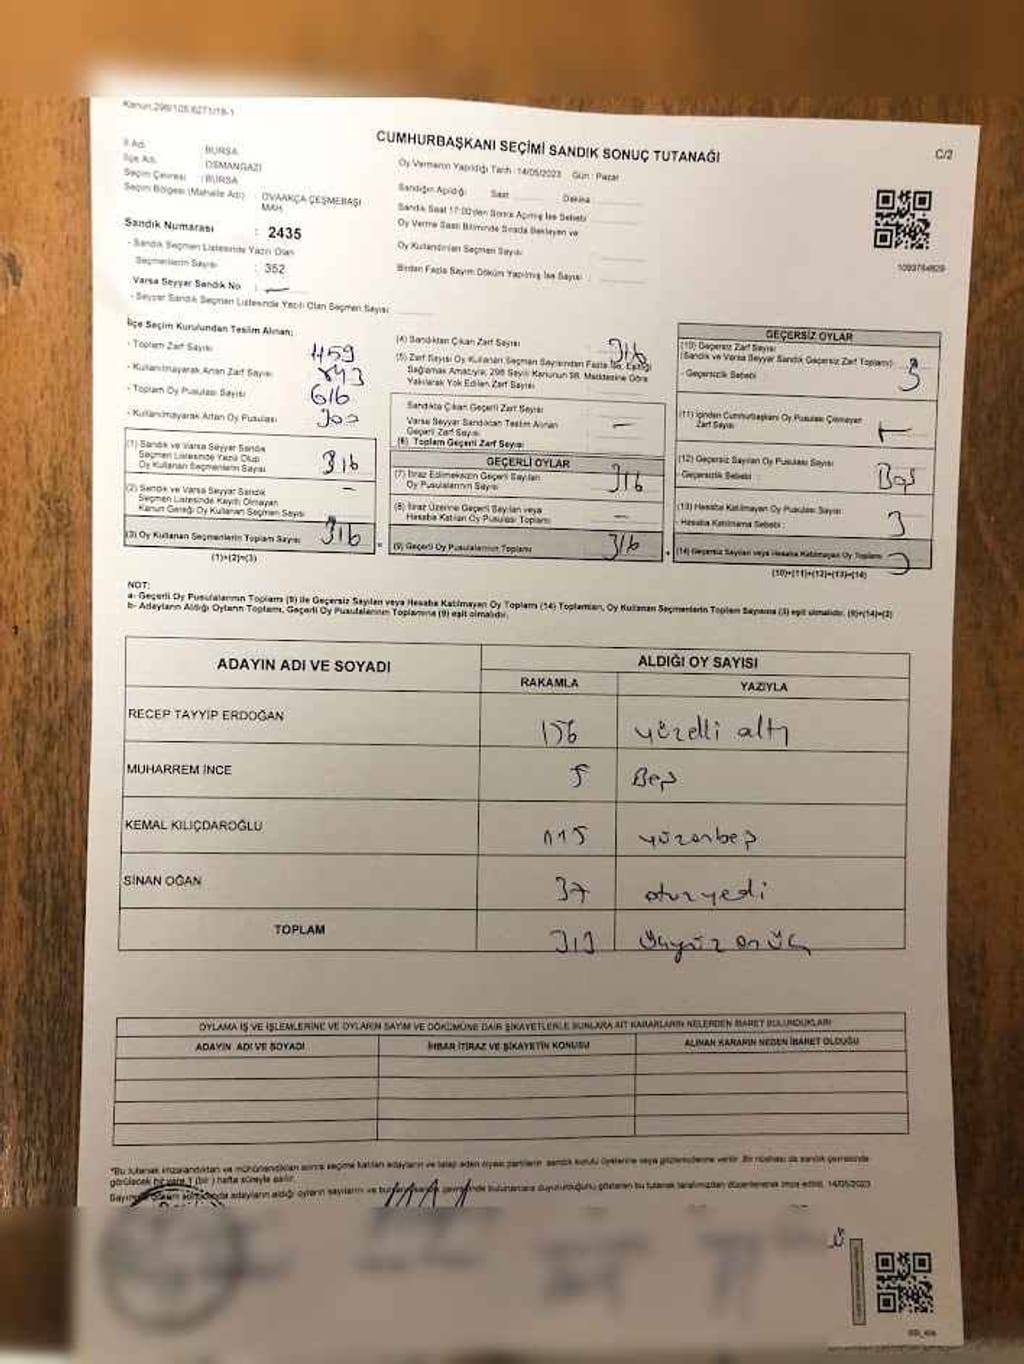 Kanun:298/105.6271/18-1
CUMHURBAŞKANI SEÇİMİ SANDIK SONUÇ TUTANAĞI
C/2
İl Adı : BURSA
İlçe Adı : OSMANGAZİ
Seçim Çevresi : BURSA
Seçim Bölgesi (Mahalle Adı) OVAAKÇA ÇEŞMEBAŞI MAH
Oy Vermenin Yapıldığı Tarih : 14/05/2023 Gün : Pazar
Sandığın Açıldığı Saat Dakika
Sandık Saat 17:00'den Sonra Açılmış İse Sebebi
Oy Verme Saati Bitiminde Sırada Bekleyen ve
Oy Kullandırılan Seçmen Sayısı
Birden Fazla Sayım Döküm Yapılmış İse Sayısı :
Sandık Numarası : 2435
- Sandık Seçmen Listesinde Yazılı Olan
Seçmenlerin Sayısı : 352
Varsa Seyyar Sandık No : —
- Seyyar Sandık Seçmen Listesinde Yazılı Olan Seçmen Sayısı
İlçe Seçim Kurulundan Teslim Alınan;
- Toplam Zarf Sayısı
- Kullanılmayarak Artan Zarf Sayısı
- Toplam Oy Pusulası Sayısı 616
- Kullanılmayarak Artan Oy Pusulası 300
(1) Sandık ve Varsa Seyyar Sandık
Seçmen Listesinde Yazılı Olup
Oy Kullanan Seçmenlerin Sayısı 316
(2) Sandık ve Varsa Seyyar Sandık
Seçmen Listesinde Kayıtlı Olmayan
Kanun Gereği Oy Kullanan Seçmen Sayısı —
(3) Oy Kullanan Seçmenlerin Toplam Sayısı 316
(1)+(2)=(3)
(4) Sandıktan Çıkan Zarf Sayısı 316
(5) Zarf Sayısı Oy Kullanan Seçmen Sayısından Fazla İse, Eşitliği
Sağlamak Amacıyla; 298 Sayılı Kanunun 98. Maddesine Göre
Yakılarak Yok Edilen Zarf Sayısı
Sandıkta Çıkan Geçerli Zarf Sayısı
Varsa Seyyar Sandıktan Teslim Alınan
Geçerli Zarf Sayısı —
(6) Toplam Geçerli Zarf Sayısı
GEÇERLİ OYLAR
(7) İtiraz Edilmeksizin Geçerli Sayılan
Oy Pusulalarının Sayısı 316
(8) İtiraz Üzerine Geçerli Sayılan veya
Hesaba Katılan Oy Pusulası Toplamı —
(9) Geçerli Oy Pusulalarının Toplamı 316
GEÇERSİZ OYLAR
(10) Geçersiz Zarf Sayısı
(Sandık ve Varsa Seyyar Sandık Geçersiz Zarf Toplamı) 3
- Geçersizlik Sebebi :
(11) İçinden Cumhurbaşkanı Oy Pusulası Çıkmayan
Zarf Sayısı
(12) Geçersiz Sayılan Oy Pusulası Sayısı
- Geçersizlik Sebebi : Boş
(13) Hesaba Katılmayan Oy Pusulası Sayısı 3
- Hesaba Katılmama Sebebi :
(14) Geçersiz Sayılan veya Hesaba Katılmayan Oy Toplamı 3
(10)+(11)+(12)+(13)=(14)
NOT:
a- Geçerli Oy Pusulalarının Toplamı (9) ile Geçersiz Sayılan veya Hesaba Katılmayan Oy Toplamı (14) Toplamları, Oy Kullanan Seçmenlerin Toplam Sayısına (3) eşit olmalıdır. (9)+(14)=(3)
b- Adayların Aldığı Oyların Toplamı, Geçerli Oy Pusulalarının Toplamına (9) eşit olmalıdır.
ADAYIN ADI VE SOYADI ALDIĞI OY SAYISI
RAKAMLA YAZIYLA
RECEP TAYYİP ERDOĞAN 156 yüzelli altı
MUHARREM İNCE 5 Beş
KEMAL KILIÇDAROĞLU 115 yüzonbeş
SİNAN OĞAN 37 otuzyedi
TOPLAM 313 üçyüz onüç
OYLAMA İŞ VE İŞLEMLERİNE VE OYLARIN SAYIM VE DÖKÜMÜNE DAİR ŞİKAYETLERLE BUNLARA AİT KARARLARIN NELERDEN İBARET BULUNDUKLARI
ADAYIN ADI VE SOYADI İHBAR İTİRAZ VE ŞİKAYETİN KONUSU ALINAN KARARIN NEDEN İBARET OLDUĞU
*Bu tutanak imzalandıktan ve mühürlendikten sonra seçime katılan adayların ve talep eden siyasi partilerin sandık kurulu üyelerine veya gözlemcilerine verilir. Bir nüshası da sandık çevresinde
görülecek bir yere 1 (bir) hafta süreyle asılır.